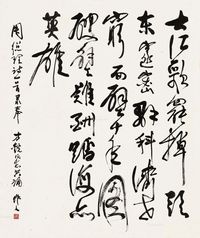 大江歌罷掉頭
东邃密群科濟世
窮面壁十年圖
破壁難酬蹈海亦
英雄
周總理詩一首